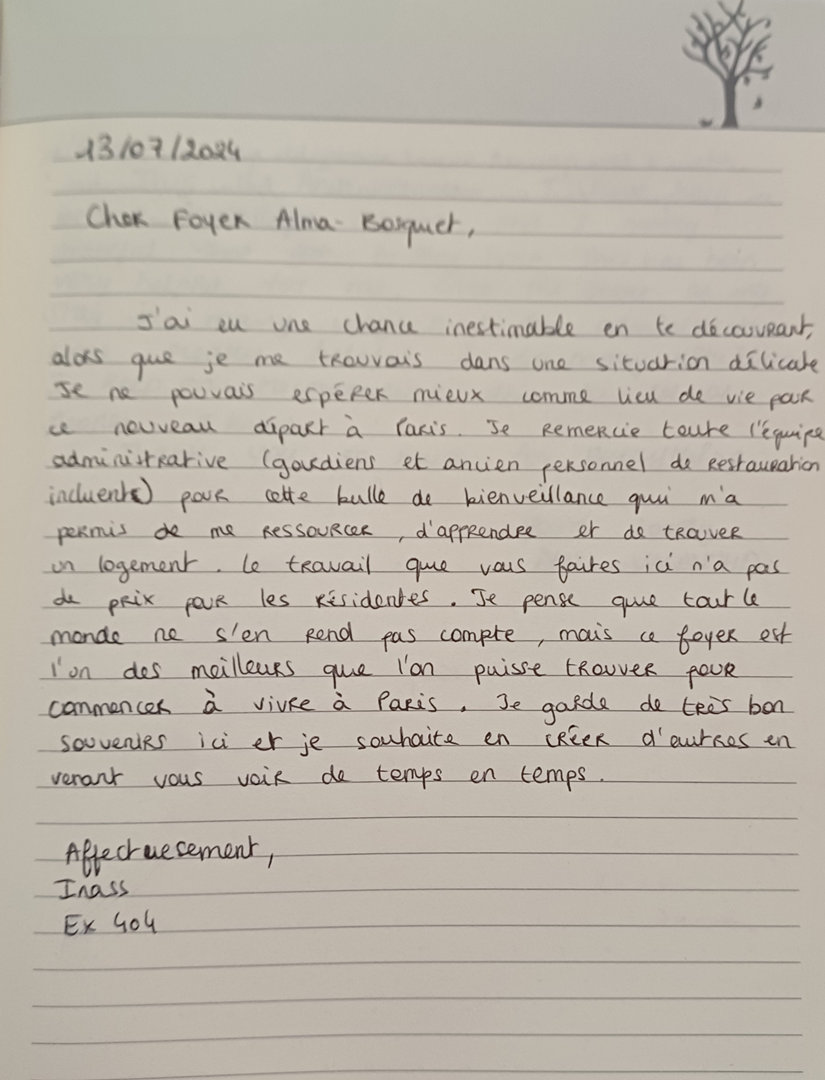 13/07/2024
Cher Foyer Alma-Bosquet,
J'ai eu une chance inestimable en te découvrant,
alors que je me trouvais dans une situation délicate
Je ne pouvais espérer mieux comme lieu de vie pour
ce nouveau départ à Paris. Je remercie toute l'équipe
administrative (gardiens et ancien personnel de restauration
incluents) pour cette bulle de bienveillance qui m'a
permis de me ressourcer, d'apprendre et de trouver
un logement. Le travail que vous faites ici n'a pas
de prix pour les résidentes. Je pense que tout le
monde ne s'en rend pas compte, mais ce foyer est
l'un des meilleurs que l'on puisse trouver pour
commencer à vivre à Paris. Je garde de très bon
souvenirs ici et je souhaite en créer d'autres en
venant vous voir de temps en temps.
Affectuesement,
Inass
Ex 404